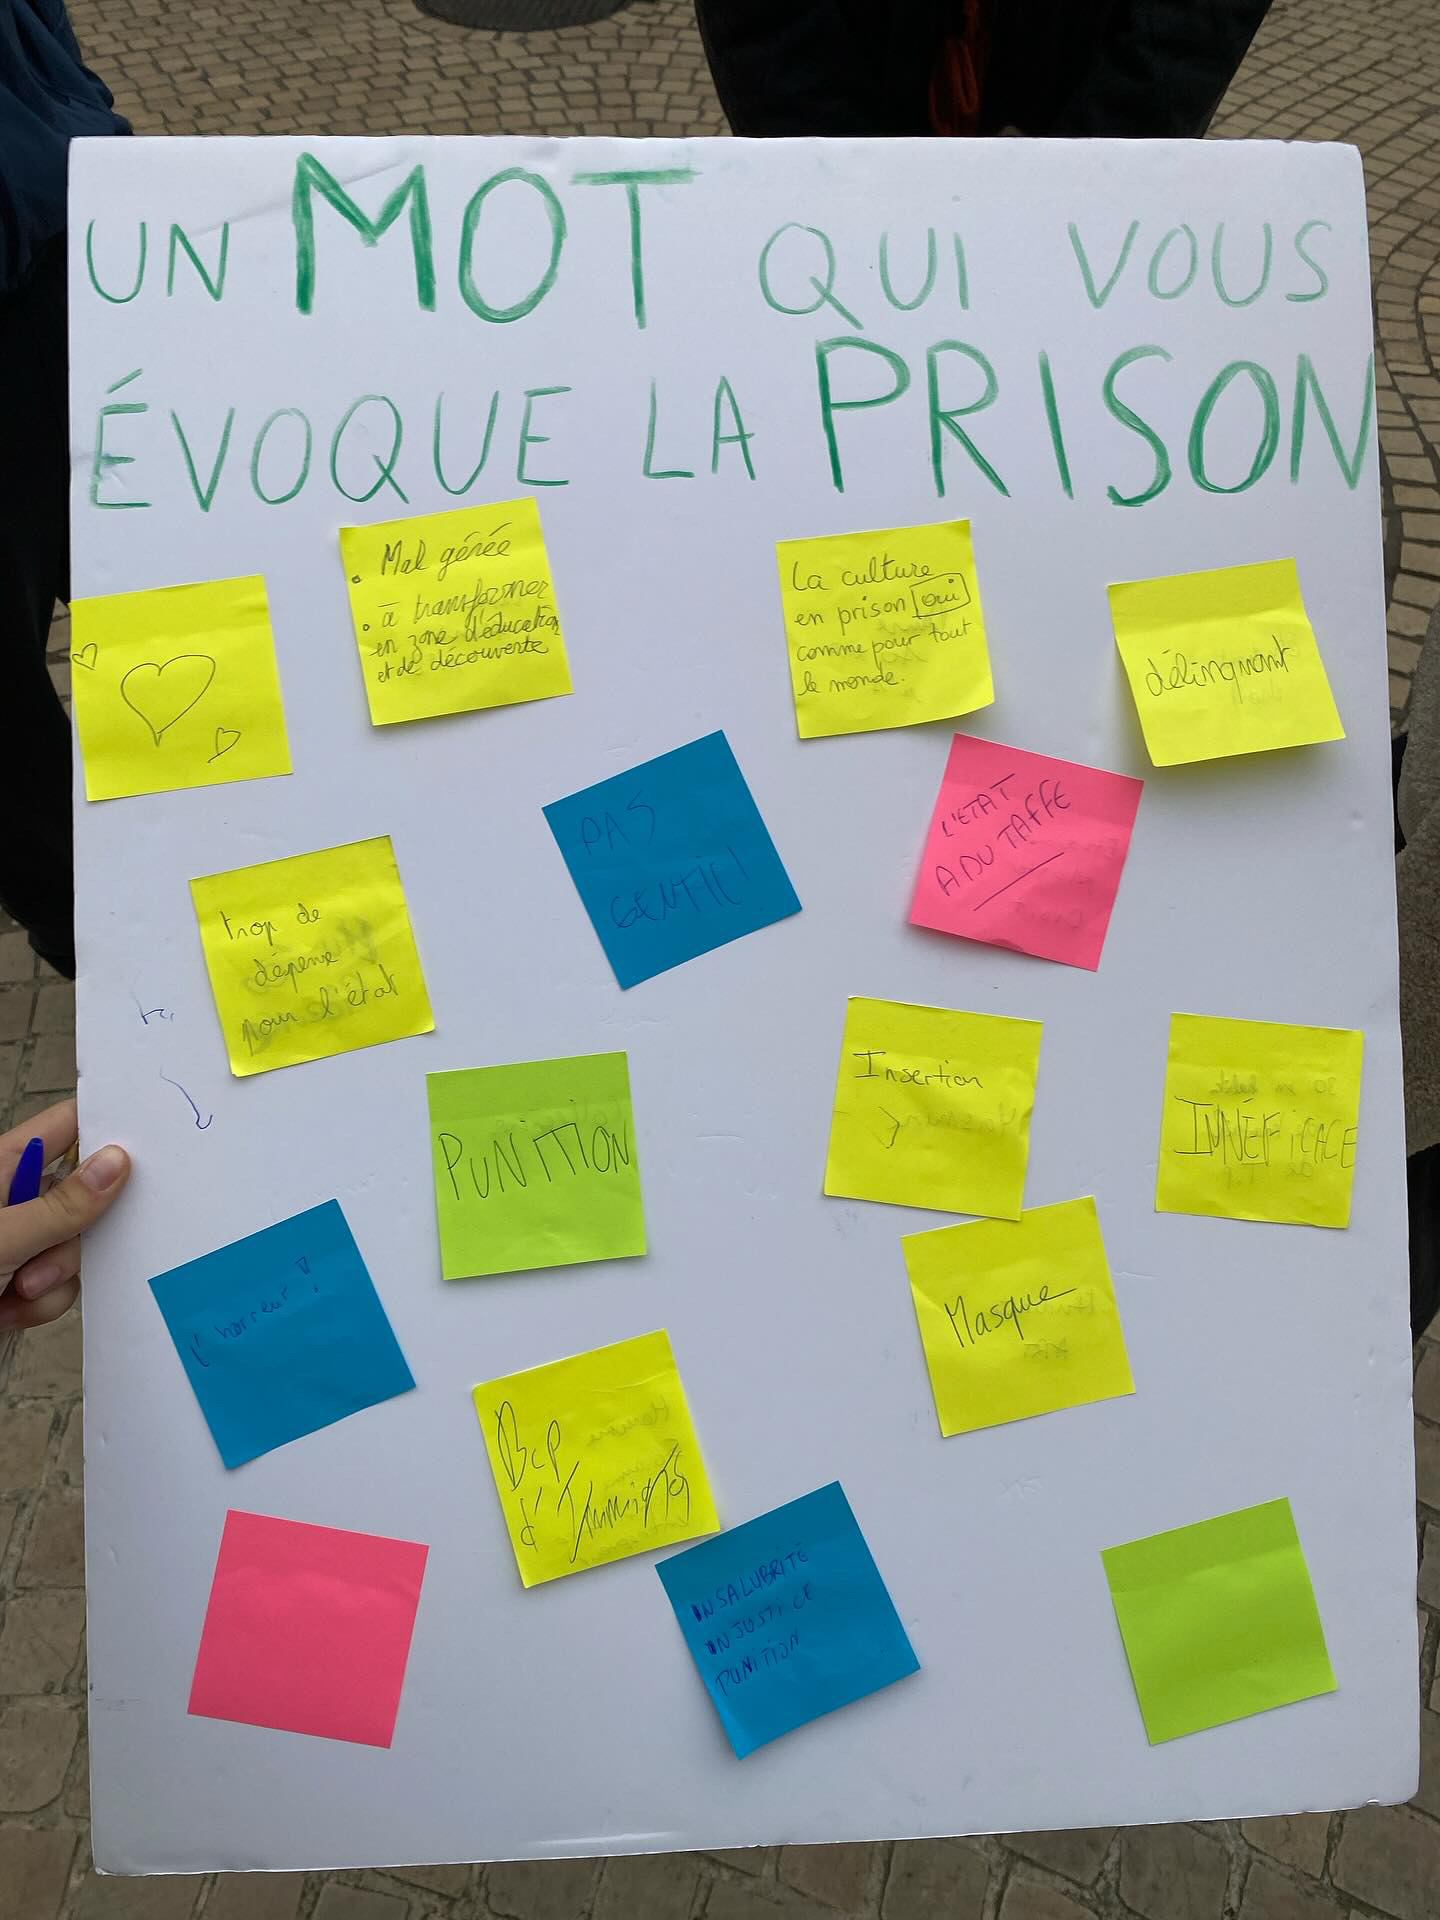 UN MOT QUI VOUS
ÉVOQUE LA PRISON
• Mal gérée
• à transformer
en zone d'éducation
et de découverte
La culture
en prison oui
comme pour tout
le monde.
délinquant
PAS
GENTIL!
L'ETAT
A DU TAFFE
trop de
dépense
pour l'état
PUNITION
Insertion
?
INNÉFICACE
l'horreur !
Masque
Bcp
d'Immigrés
INSALUBRITÉ
INJUSTICE
PUNITION